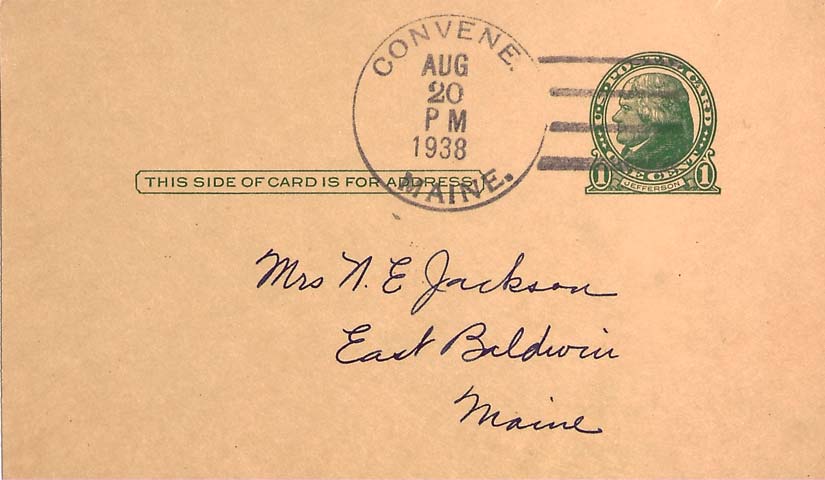 CONVENE.
AUG
20
PM
1938
MAINE.
U.S. POSTAL CARD
ONE CENT
1 JEFFERSON 1
THIS SIDE OF CARD IS FOR ADDRESS
Mrs N. E Jackson
East Baldwin
Maine